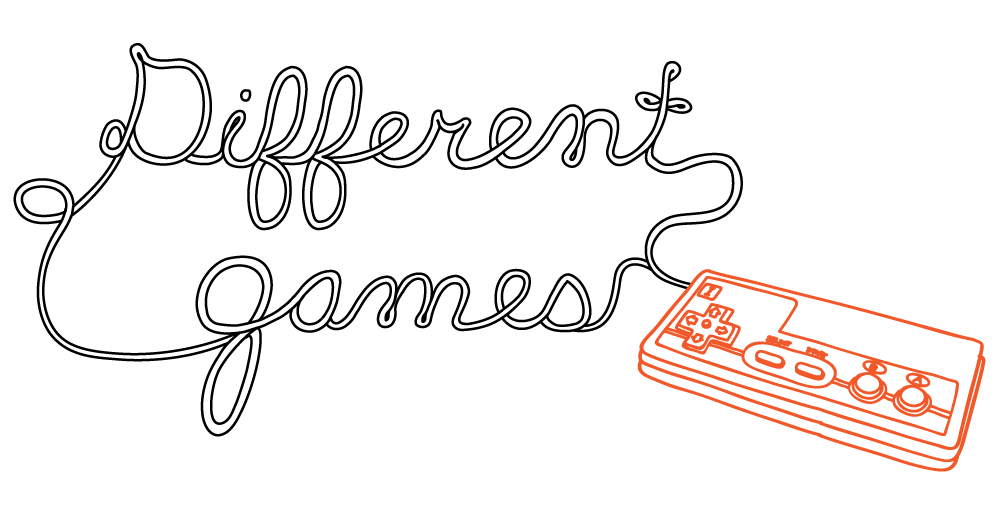 Different
games
I
B A